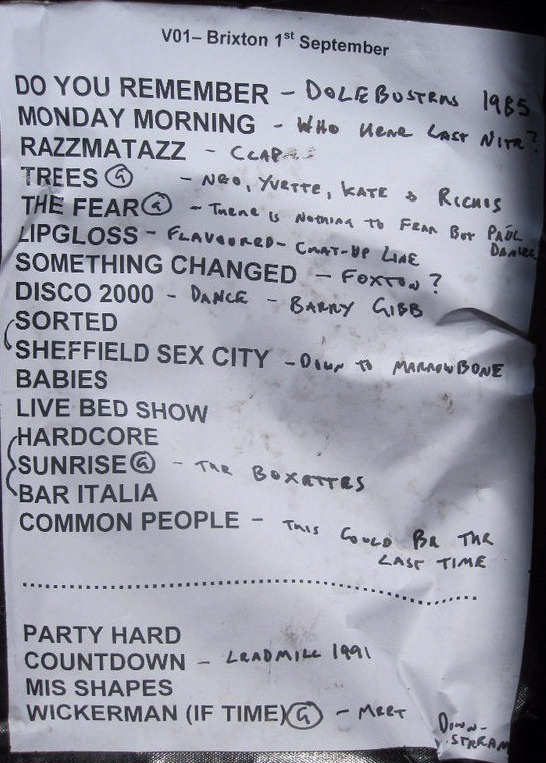 V01– Brixton 1st September
DO YOU REMEMBER – DOLEBUSTERS 1985
MONDAY MORNING – WHO HERE LAST NITE?
RAZZMATAZZ – CLAPS
TREES G – NGO, YVETTE, KATE & RICHUS
THE FEAR G – THERE IS NOTHING TO FEAR BUT PAUL DANIELS
LIPGLOSS – FLAVOURED – CHAT-UP LINE
SOMETHING CHANGED – FOXTON?
DISCO 2000 – DANCE – BARRY GIBB
SORTED
SHEFFIELD SEX CITY – DOWN TO MARROWBONE
BABIES
LIVE BED SHOW
HARDCORE
SUNRISE G – THE BOXETTES
BAR ITALIA
COMMON PEOPLE – THIS COULD BE THE
LAST TIME
PARTY HARD
COUNTDOWN – LEADMILL 1991
MIS SHAPES
WICKERMAN (IF TIME) G – MEET DOWN-
STREAM